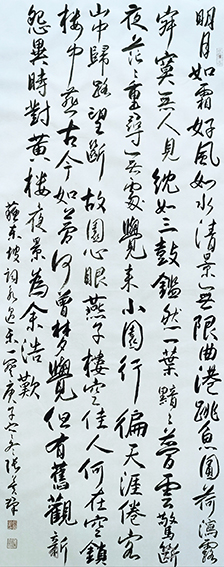 明月如霜好風如水清景無限曲港跳魚圓荷瀉露
寂寞無人見紞如三鼓鏗然一葉黯〻夢雲驚斷
夜茫〻重尋無處覺來小園行遍天涯倦客
山中歸路望斷故園心眼燕子樓空佳人何在空鎖
樓中燕古今如夢何曾夢覺但有舊歡新
怨異時對黃樓夜景為余浩歎
蘇東坡詞永遇樂一 庚子